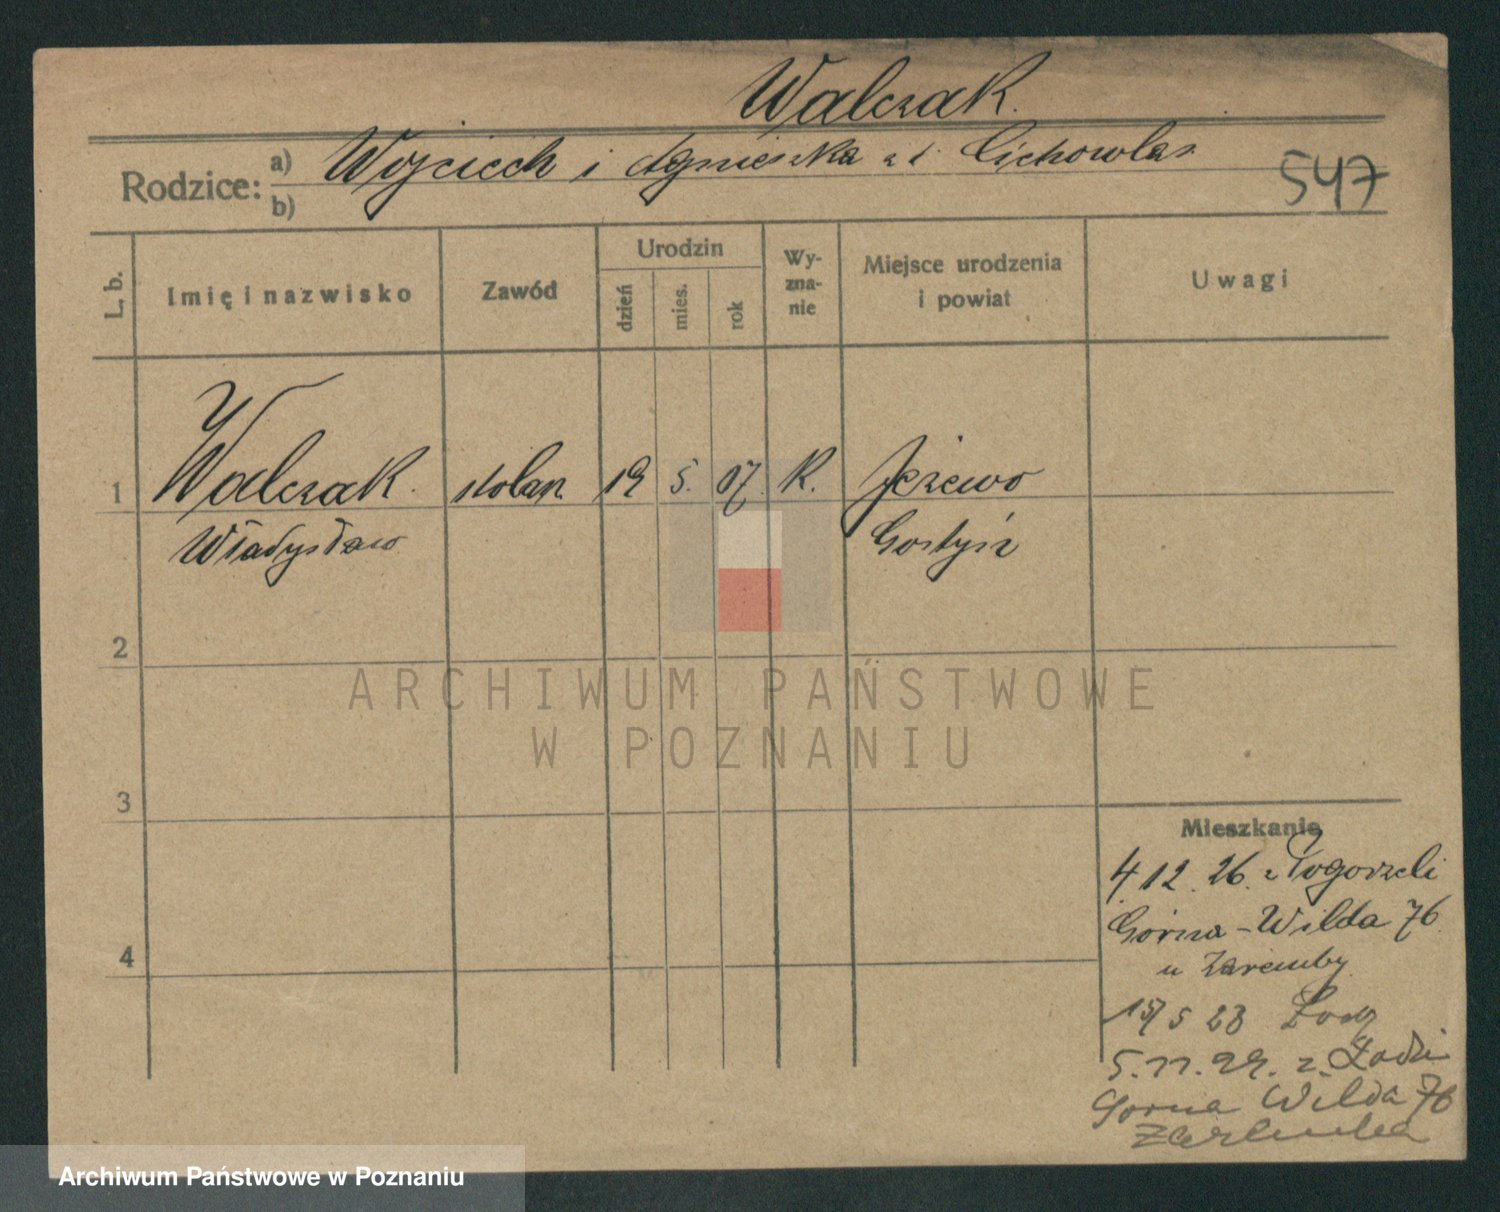 Walczak.
Rodzice: a) Wojciech i Agnieszka z d. Cichowlas
b)
547
L. b.
Imię i nazwisko
Zawód
Urodzin
dzień
mies.
rok
Wy-
zna-
nie
Miejsce urodzenia
i powiat
Uwagi
1
Walczak. stolarz 19 5. 07. K. Jeżewo
Władysław Gostyń
2
ARCHIWUM PAŃSTWOWE
W POZNANIU
3
Mieszkanie
4 12. 26. z Pogorzeli
Górna-Wilda 76
u Zaremby
4
15/5 28 Łodz
5.11.29. z Łodzi
Gorna Wilda 76
Archiwum Państwowe w Poznaniu